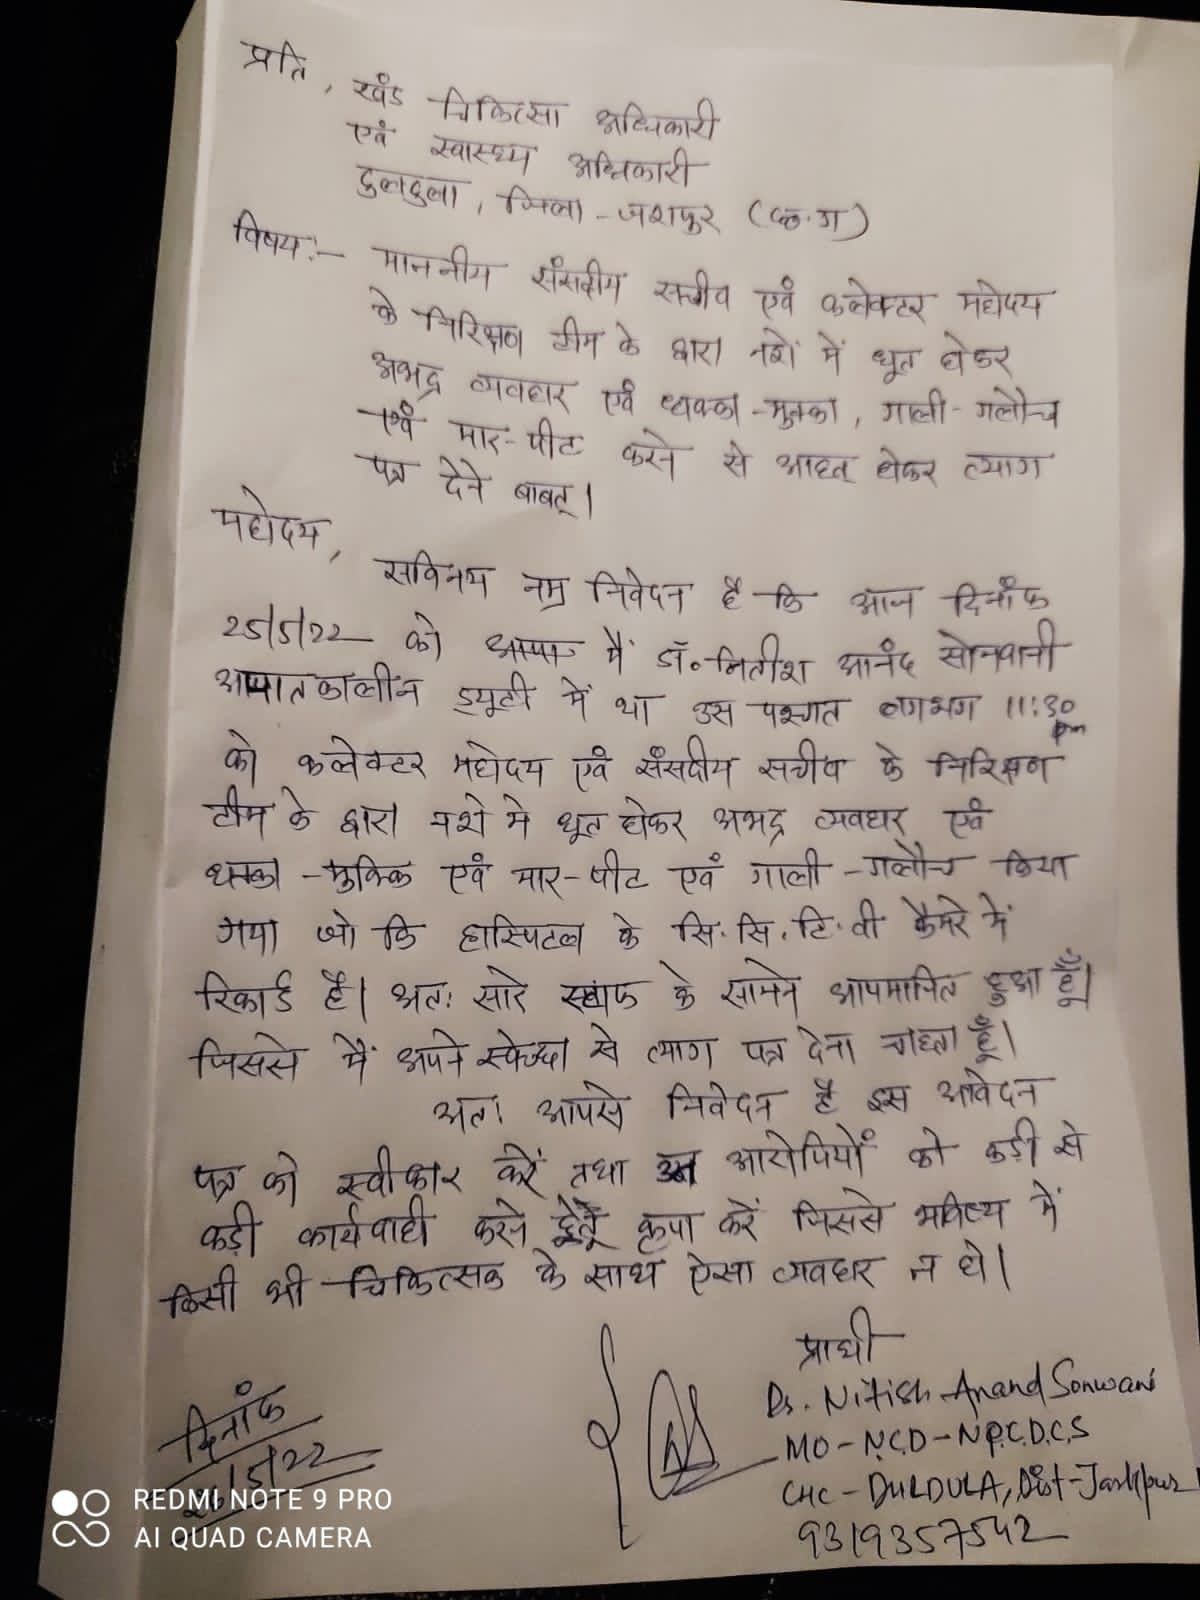 प्रति, खंड चिकित्सा अधिकारी
एवं स्वास्थ्य अधिकारी
दुलदुला, जिला - जशपुर (छ.ग)
विषय:- माननीय संसदीय सचीव एवं कलेक्टर महोदय
के निरिक्षण टीम के द्वारा नशे में धूत होकर
अभद्र व्यवहार एवं धक्का-मुक्का, गाली-गलौच
एवं मार-पीट करने से आहत होकर त्याग
पत्र देने बाबत्।
महोदय,
सविनय नम्र निवेदन है कि आज दिनाँक
25/5/22 को मैं डॉ. नितीश आनंद सोनवानी
आपातकालीन ड्यूटी में था उस पश्गत लगभग 11:30 pm
को कलेक्टर महोदय एवं संसदीय सचीव के निरिक्षण
टीम के द्वारा नशे मे धूत होकर अभद्र व्यवहार एवं
धक्का-मुक्कि एवं मार-पीट एवं गाली-गलौच किया
गया जो कि हास्पिटल के सि.सि.टि.वी कैमरे में
रिकार्ड है। अतः सारे स्टाफ के सामने आपमानित हुआ हूँ।
जिससे मैं अपने स्वेच्छा से त्याग पत्र देना चाहता हूँ।
अतः आपसे निवेदन है इस आवेदन
पत्र को स्वीकार करें तथा उन आरोपियों को कड़ी से
कड़ी कार्यवाही करने हेतू कृपा करें जिससे भविष्य में
किसी भी चिकित्सक के साथ ऐसा व्यवहार न हो।
प्रार्थी
Dr. Nitish Anand Sonwani
MO-NCD-NPCDCS
CHC-DULDULA, Dist-Jashpur
9319357542
दिनांक
26/5/22
REDMI NOTE 9 PRO
AI QUAD CAMERA